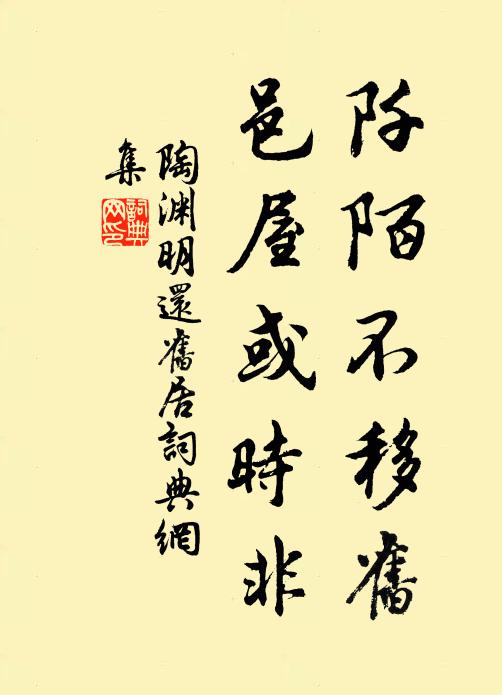 阡陌不移舊
邑屋或時非
陶渊明還舊居詞典網
集
詞典
网印